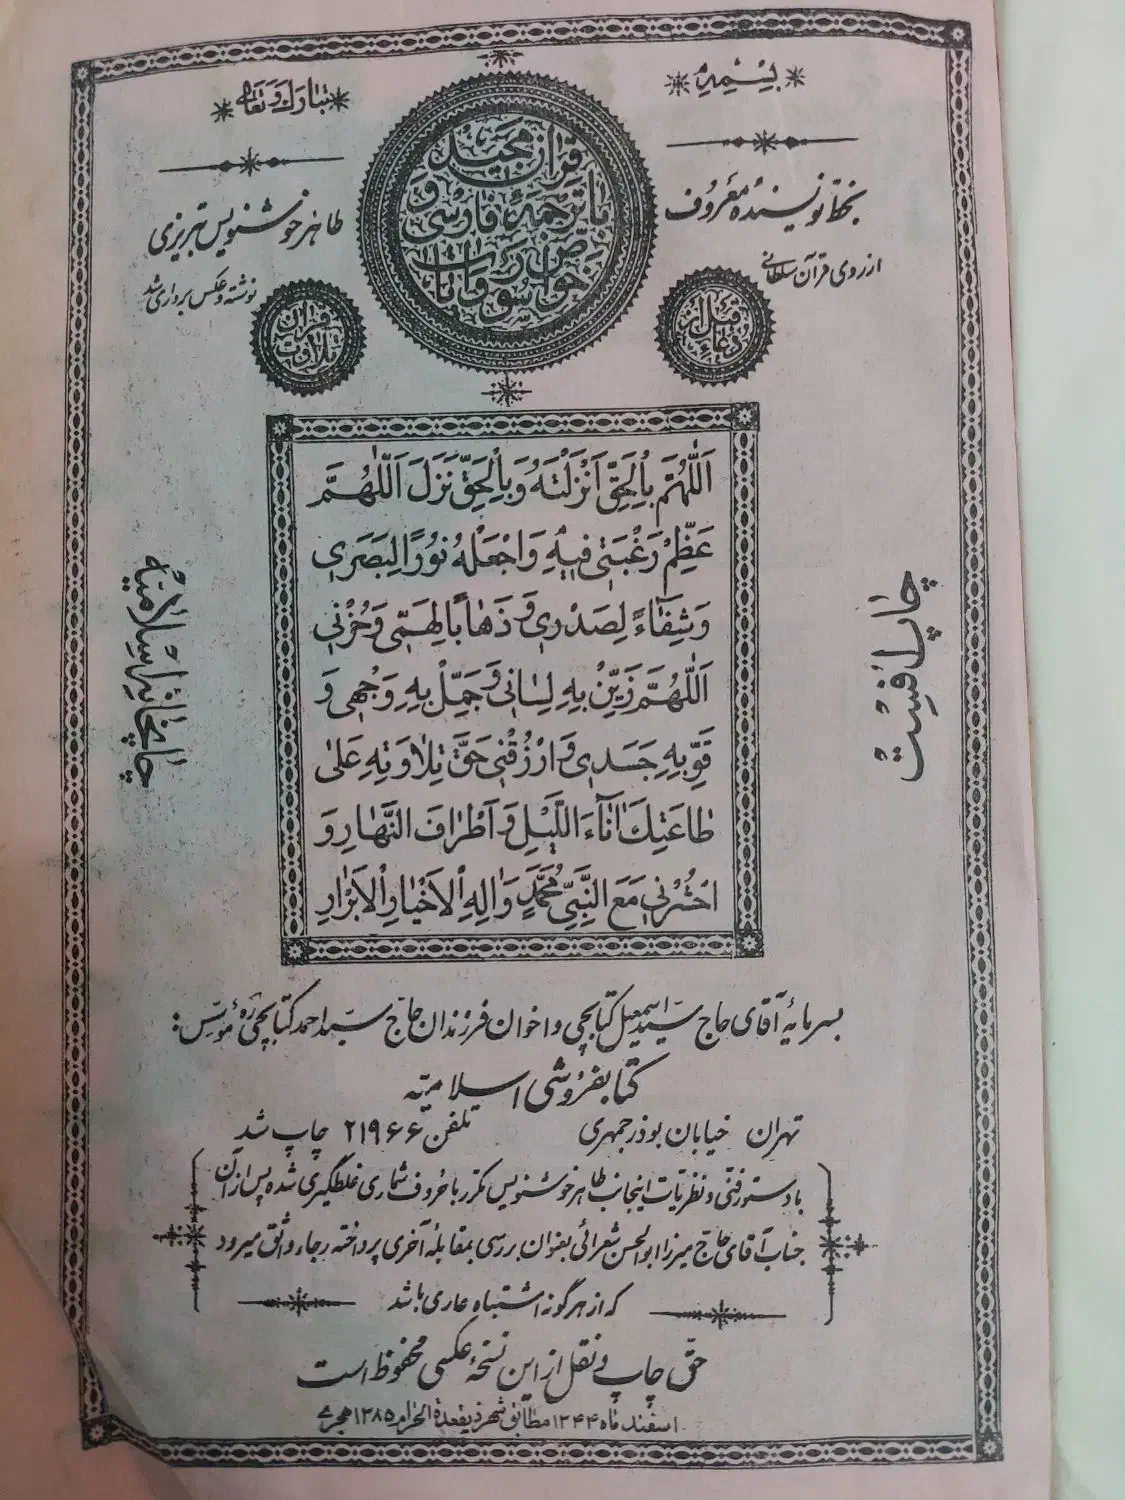 بسمه
تبارک و تعالی
قرآن مجید
با ترجمهٔ فارسی و
خواص سور و آیات
بخط نویسنده معروف
طاهر خوشنویس تبریزی
از روی قرآن سلطانی
نوشته و عکس برداری شد
دعاء
قبل از
تلاوت
قرآن
اَللّٰهُمَّ بِالْحَقِّ اَنْزَلْتَهُ وَ بِالْحَقِّ نَزَلَ اَللّٰهُمَّ
عَظِّمْ رَغْبَتی فیهِ وَ اجْعَلْهُ نُورًا لِبَصَری
وَ شِفٰاءً لِصَدْری وَ ذَهٰابًا لِهَمّی وَ حُزْنی
اَللّٰهُمَّ زَیِّنْ بِهِ لِسٰانی وَ جَمِّلْ بِهِ وَجْهی وَ
قَوِّ بِهِ جَسَدی وَ ارْزُقْنی حَقَّ تِلٰاوَتِهِ عَلیٰ
طٰاعَتِکَ اٰنٰاءَ اللَّیْلِ وَ اَطْرٰافَ النَّهٰارِ وَ
احْشُرْنی مَعَ النَّبِیِّ مُحَمَّدٍ وَ اٰلِهِ الْاَخْیٰارِ الْاَبْرٰارِ
چاپ افست
چاپخانه اسلامیه
بسرمایهٔ آقای حاج سیّد اسمعیل کتابچی و اخوان فرزندان حاج سیّد احمد کتابچی ره مؤسّس:
کتابفروشی اسلامیّه
تهران خیابان بوذرجمهری تلفن ۲۱۹۶۶ چاپ شد
با دستور فنّی و نظریات اینجانب طاهر خوشنویس مکرّر با حروف شماری غلطگیری شده پس از آن
جناب آقای حاج میرزا ابوالحسن شعرائی بعنوان بررسی بمقابله آخری پرداخته رجاء واثق میرود
که از هرگونه اشتباه عاری باشد
حقّ چاپ و نقل از این نسخهٔ عکسی محفوظ است
اسفند ماه ۱۳۴۴ مطابق شهر ذیقعدة الحرام ۱۳۸۵ هجری